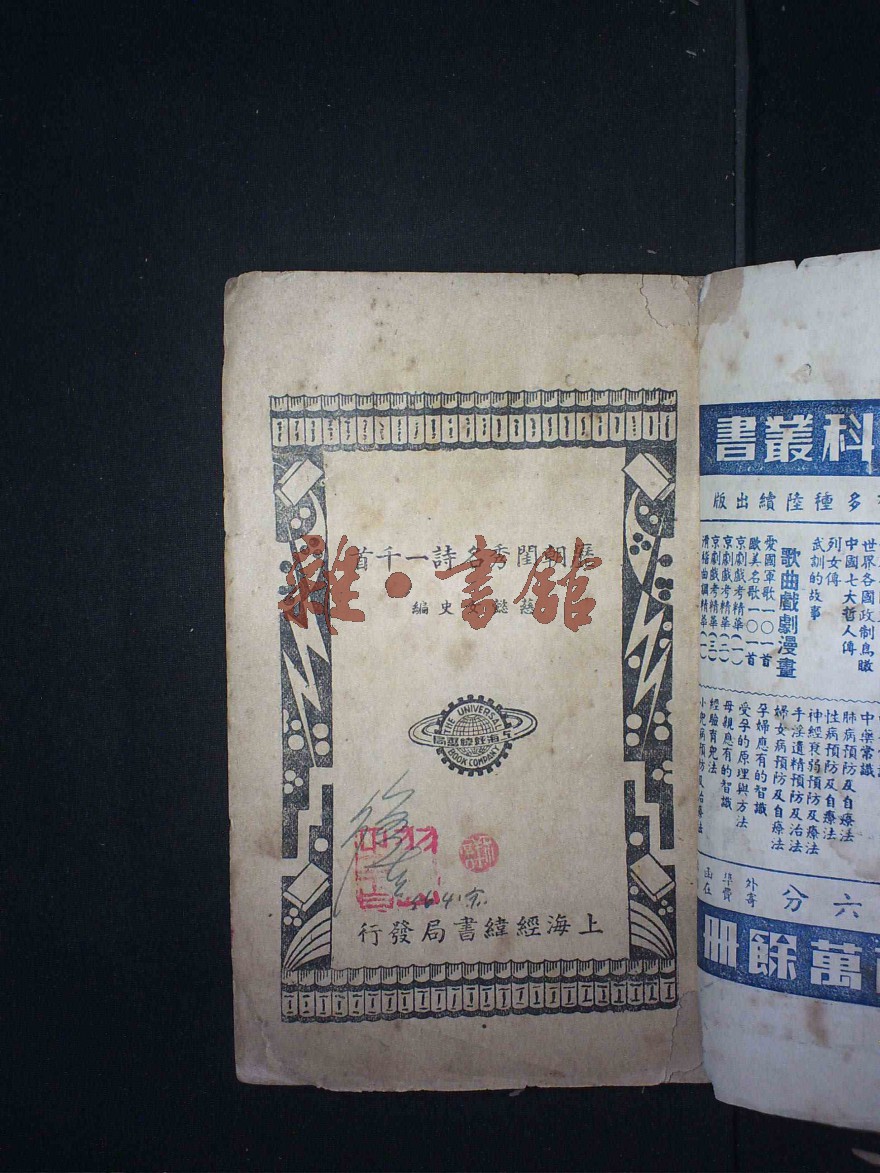 歷朝閨秀名詩一千首
史編
THE UNIVERSAL
上海經緯書局
BOOK COMPANY
上海經緯書局發行
雜·書館
科叢書
多種陸續出版
世界各國政制鳥瞰
中國七大哲人傳
列女傳
武訓的故事
歌曲戲劇漫畫
愛國軍歌一〇一首
歐美名歌一〇一首
京劇戲考精華(一)
京劇戲考精華(二)
京劇戲考精華(三)
中藥常識
肺病預防及自療法
性病預防及自療法
神經衰弱預防及療法
手淫遺精預防及治法
婦女病預防及自療法
孕婦應有的智識
受孕的原理與方法
母親應有的智識
經驗育兒法
小兒病預防及治療法
外寄
六分
萬餘冊